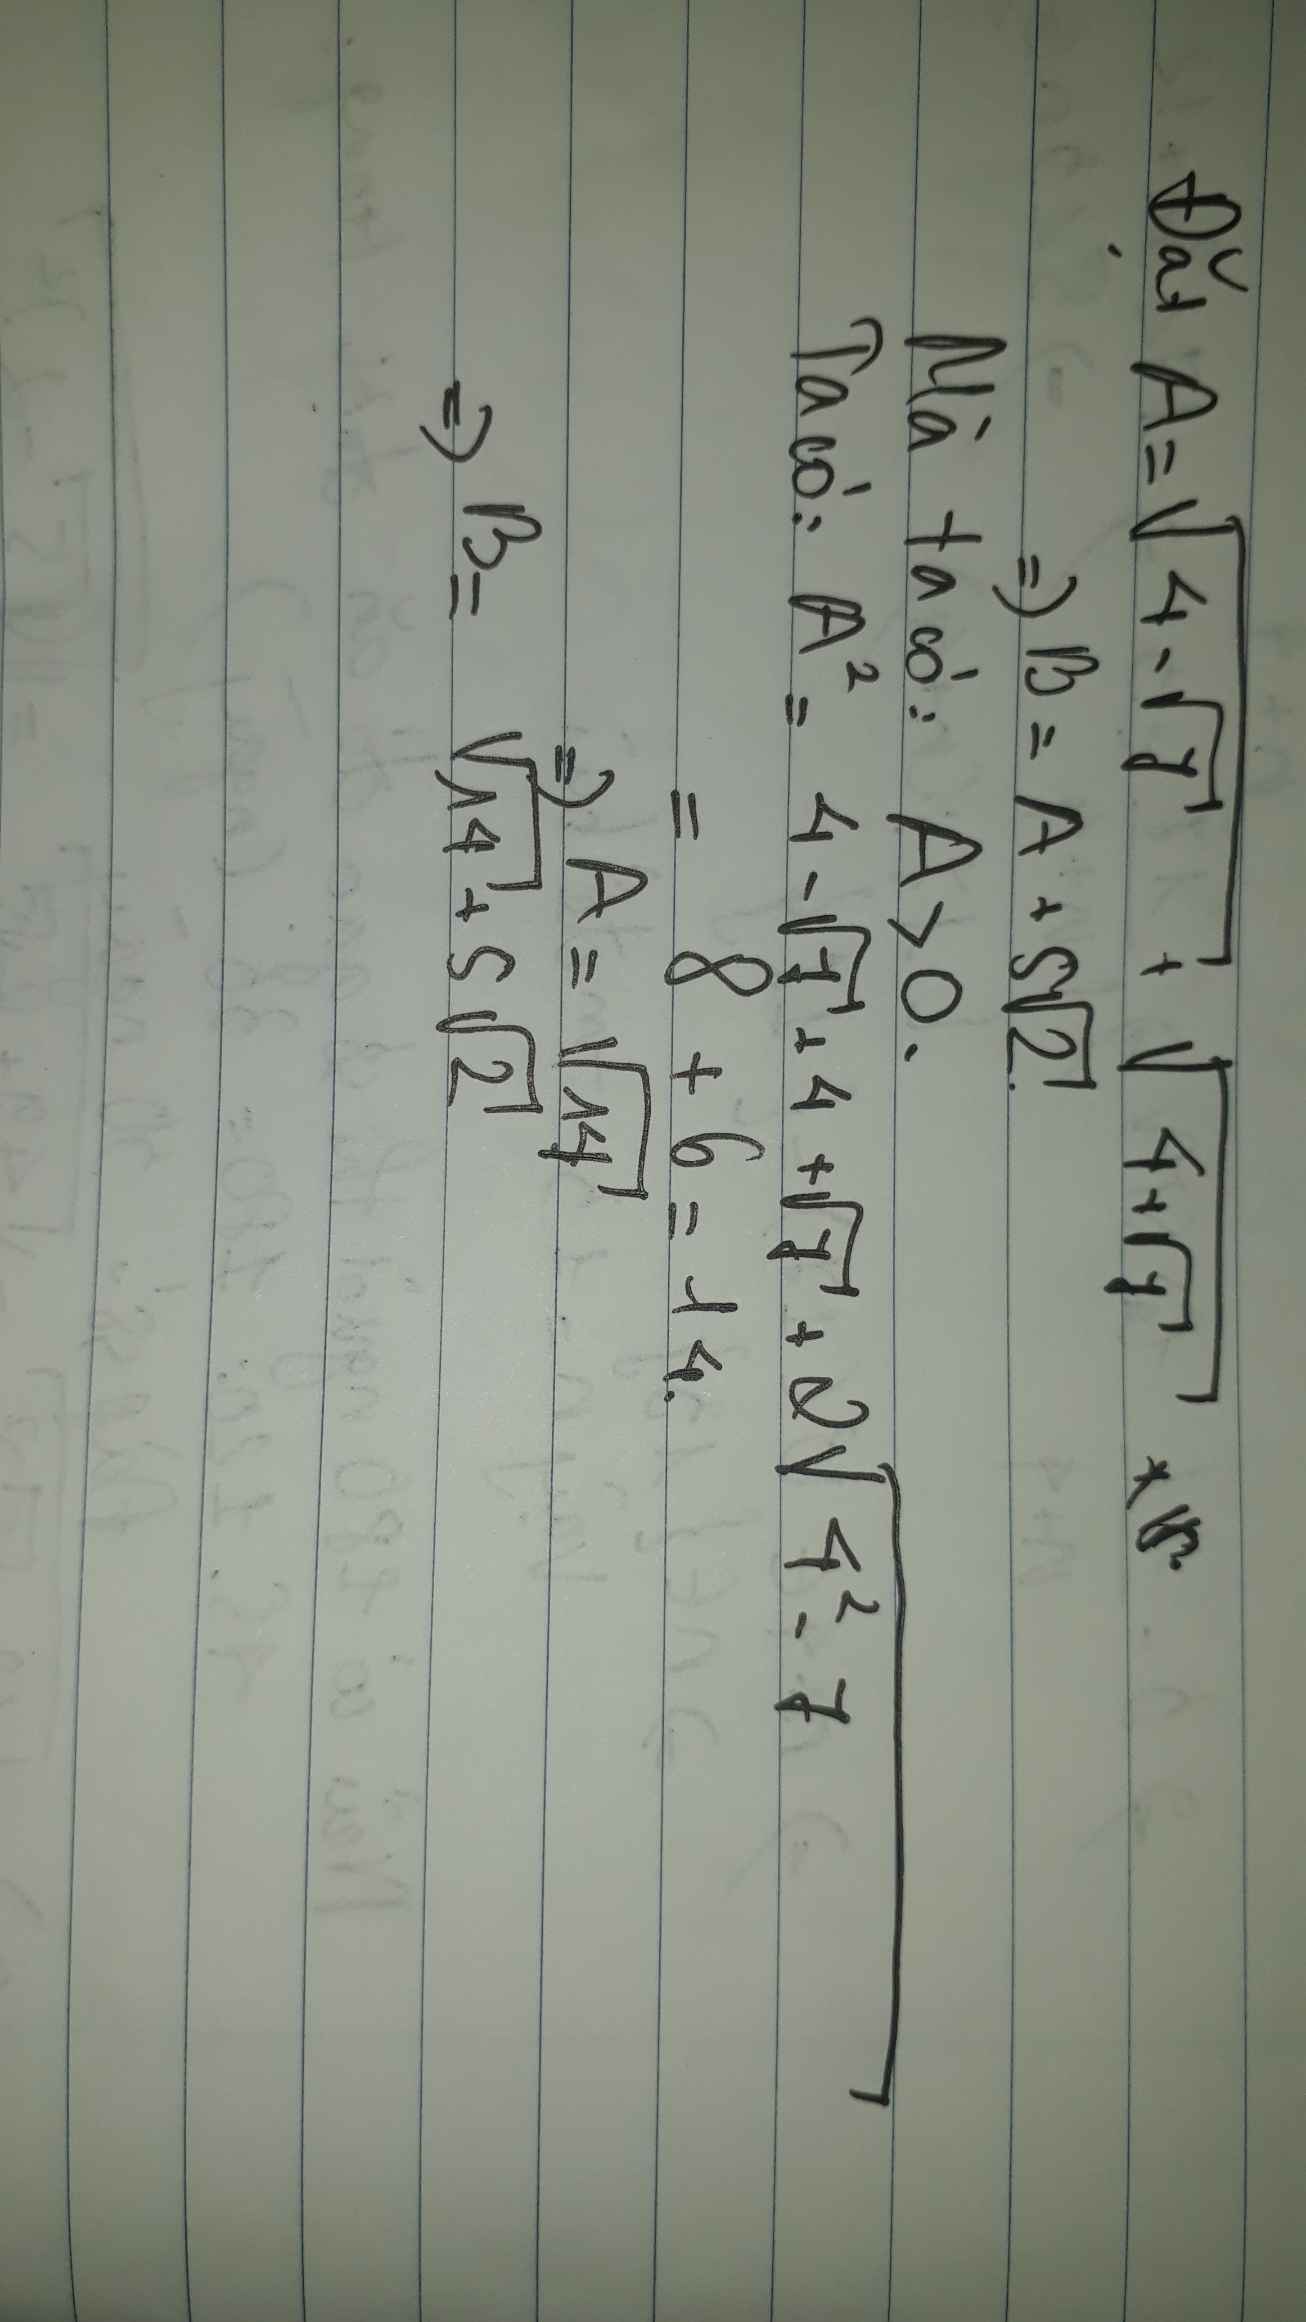 Đặt A = √(4 - √7) + √(4 + √7)
=> B = A + 5√2.
Mà ta có: A > 0.
Ta có: A² = 4 - √7 + 4 + √7 + 2√(4² - 7)
= 8 + 6 = 14.
=> A = √14
=> B = √14 + 5√2